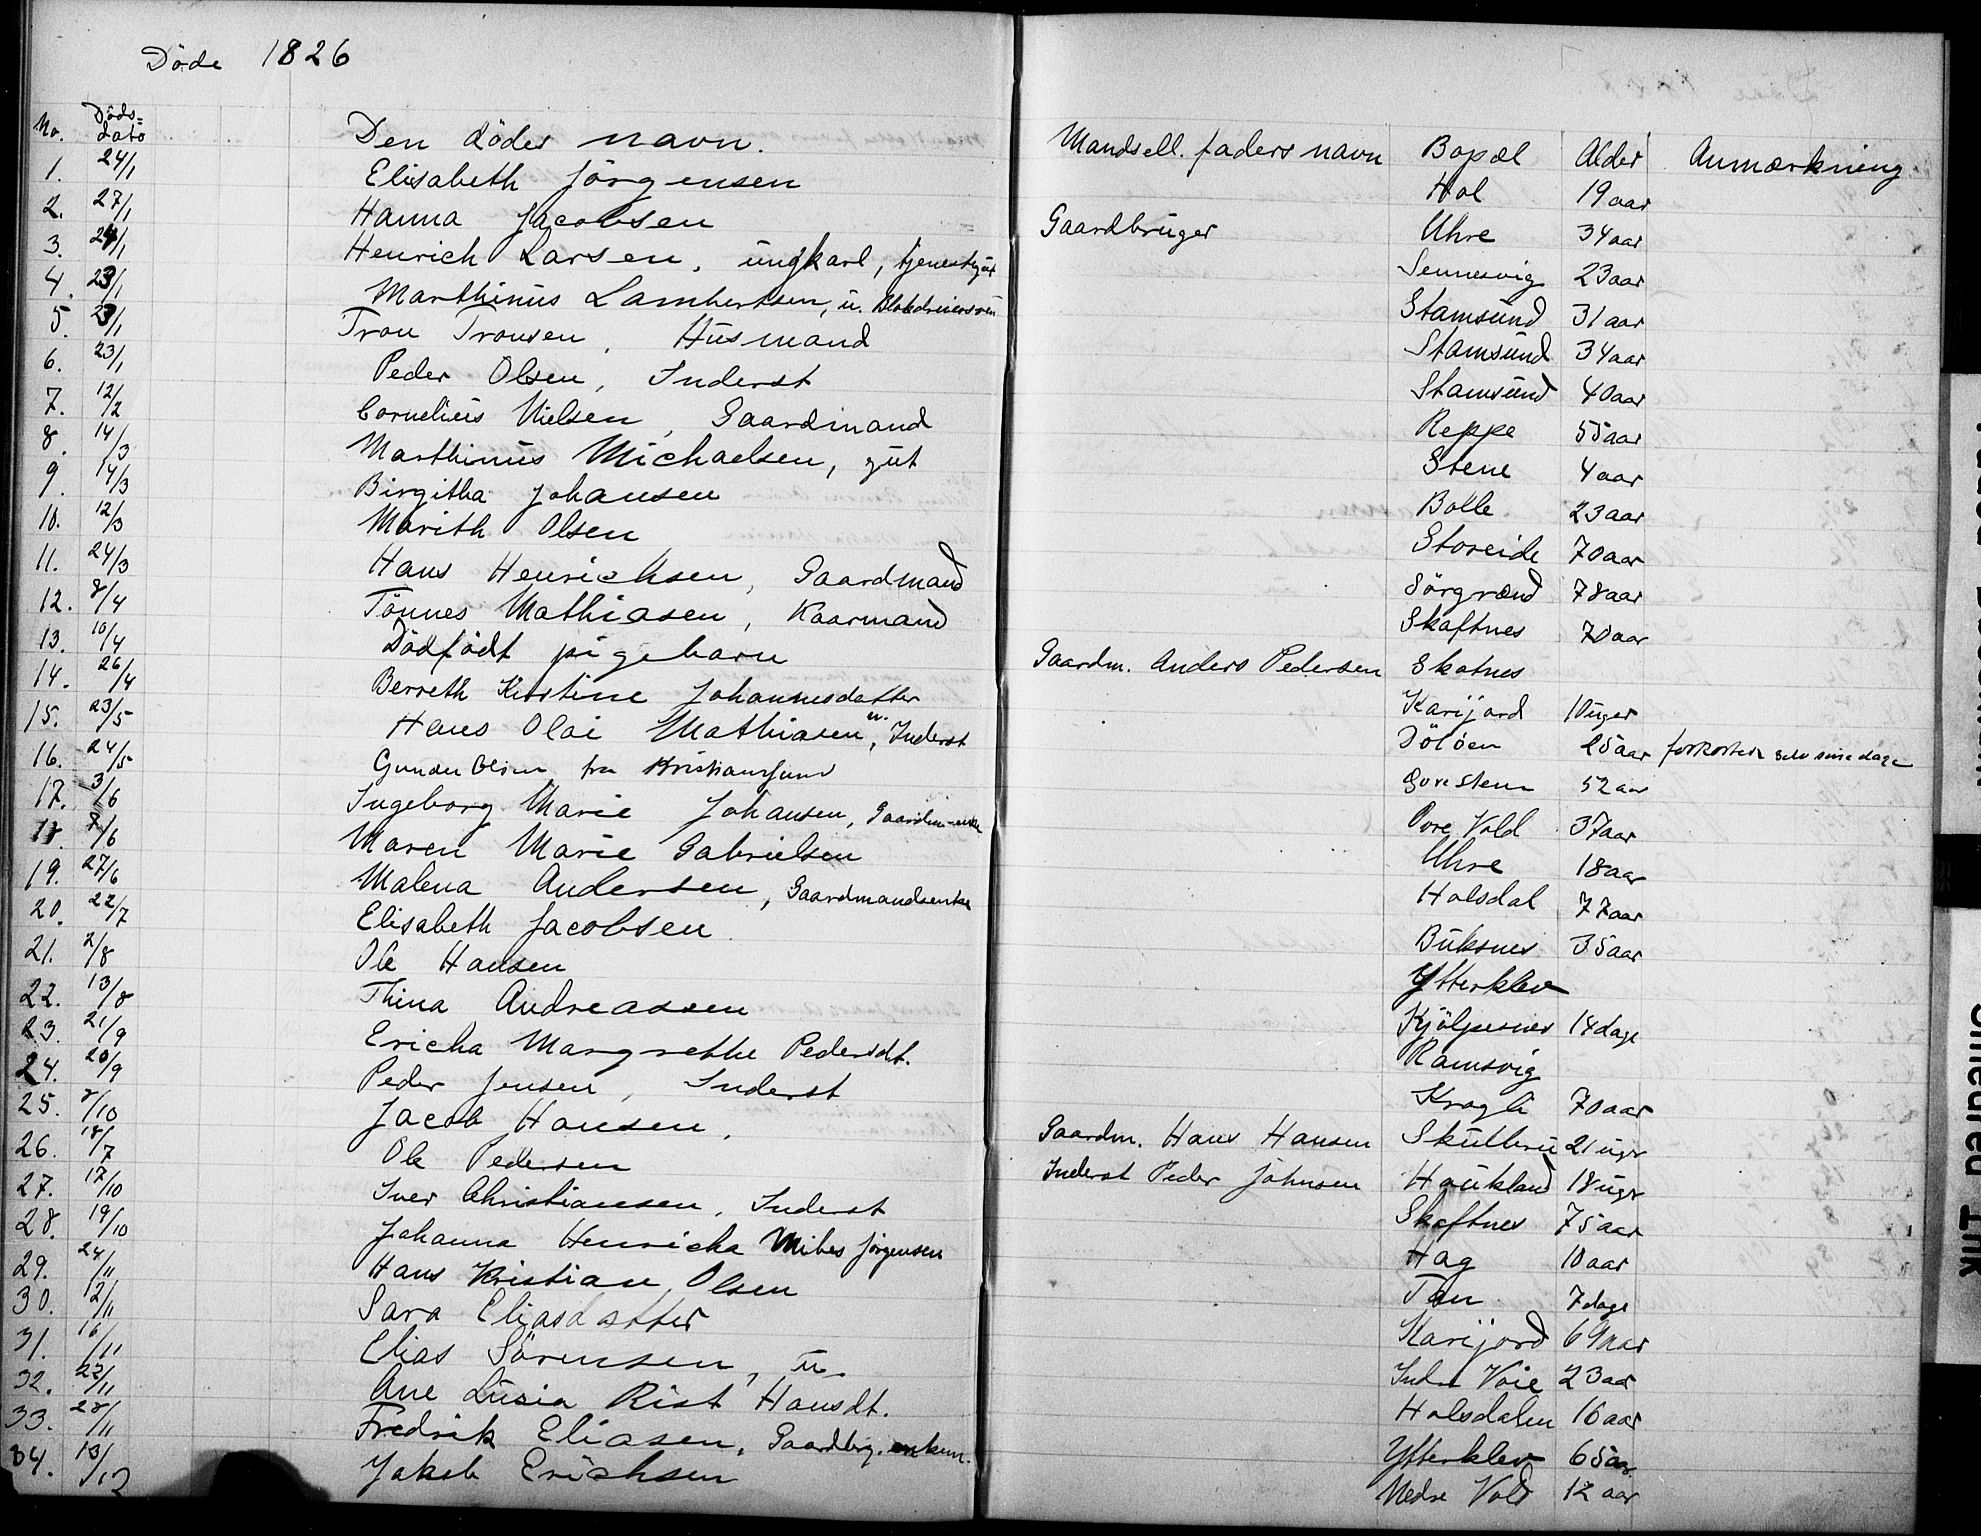 Döde 1826
No. Döds= dato Den dödes navn. Mands ell. faders navn Bopæl Alder Anmærkning
1. 24/1 Elisabeth Jörgensen Hol 19 aar
2. 27/1 Hanna Jacobsen Gaardbruger Uhre 34 aar
3. 24/1 Henrich Larsen, ungkarl, tjenestgut Sennesvig 23 aar
4. 23/1 Marthinus Lambertsen, u. Stamsund 31 aar
5. 23/1 Tron Tronsen, Husmand Stamsund 34 aar
6. 23/1 Peder Olsen, Inderst Stamsund 40 aar
7. 12/2 Cornelius Nielsen, Gaardmand Reppe 55 aar
8. 14/3 Marthinus Michaelsen, gut Stene 4 aar
9. 14/3 Birgitha Johansen Bolle 23 aar
10. 12/3 Marith Olsen Storeide 70 aar
11. 24/3 Hans Henrichsen, Gaardmand Sörgrænd 78 aar
12. 8/4 Tönnes Mathiasen, Kaarmand Skaftnes 70 aar
13. 10/4 Dödfödt pigebarn Gaardm. Anders Pedersen Skotnes
14. 26/4 Berreth Kirstine Johannesdatter Karijord 10 uger
15. 23/5 Hans Olai Mathiasen, u. Inderst 25 aar forkortede selv sine dage
16. 24/5 Gunder Olsen fra Kristiansund 52 aar
17. 3/6 Ingeborg Marie Johansen, Gaardm-enke Övre Vold 37 aar
18. 7/6 Maren Marie Gabrielsen Uhre 18 aar
19. 27/6 Malena Andersen, Gaardmandsenke Holsdal 77 aar
20. 22/7 Elisabeth Jacobsen Buksnes 35 aar
21. 2/8 Ole Hansen Ytterklev
22. 13/8 Thina Andreassen Kjölpesnes 14 dage
23. 21/9 Ericha Margrethe Pedersdt. Ramsvig
24. 20/9 Peder Jensen, Inderst Kragli 70 aar
25. 8/10 Jacob Hansen, Gaardm. Hans Hansen Skulbru 21 uger
26. 18/7 Ole Pedersen Inderst Peder Johnsen Haukland 18 uger
27. 17/10 Iver Christiansen, Inderst Skaftnes 75 aar
28. 19/10 Johanna Henricha Mibes Jörgensen Hag 10 aar
29. 24/11 Hans Kristian Olsen 7 dage
30. 12/11 Sara Eliasdatter Karijord 69 aar
31. 16/11 Elias Sörensen, u. Indre Voie 23 aar
32. 22/11 Ane Lusia Rist Hansdt. Holsdalen 16 aar
33. 28/11 Fredrik Eliasen, Gaardbrg. enkem. Ytterklev 65 aar
34. 13/12 Jakob Erichsen Nedre Vold 12 aar